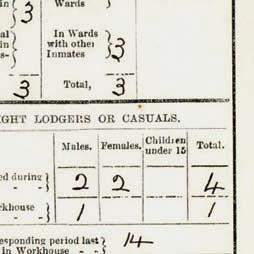 in } 3 Wards }
al
in } In Wards
with other } 3
s- Inmates
3 Total, 3
IGHT LODGERS OR CASUALS.
Males. Females. Children under 15 Total.
ed during } 2 2 4
rkhouse } 1 1
esponding period last } 14
in Workhouse - - }